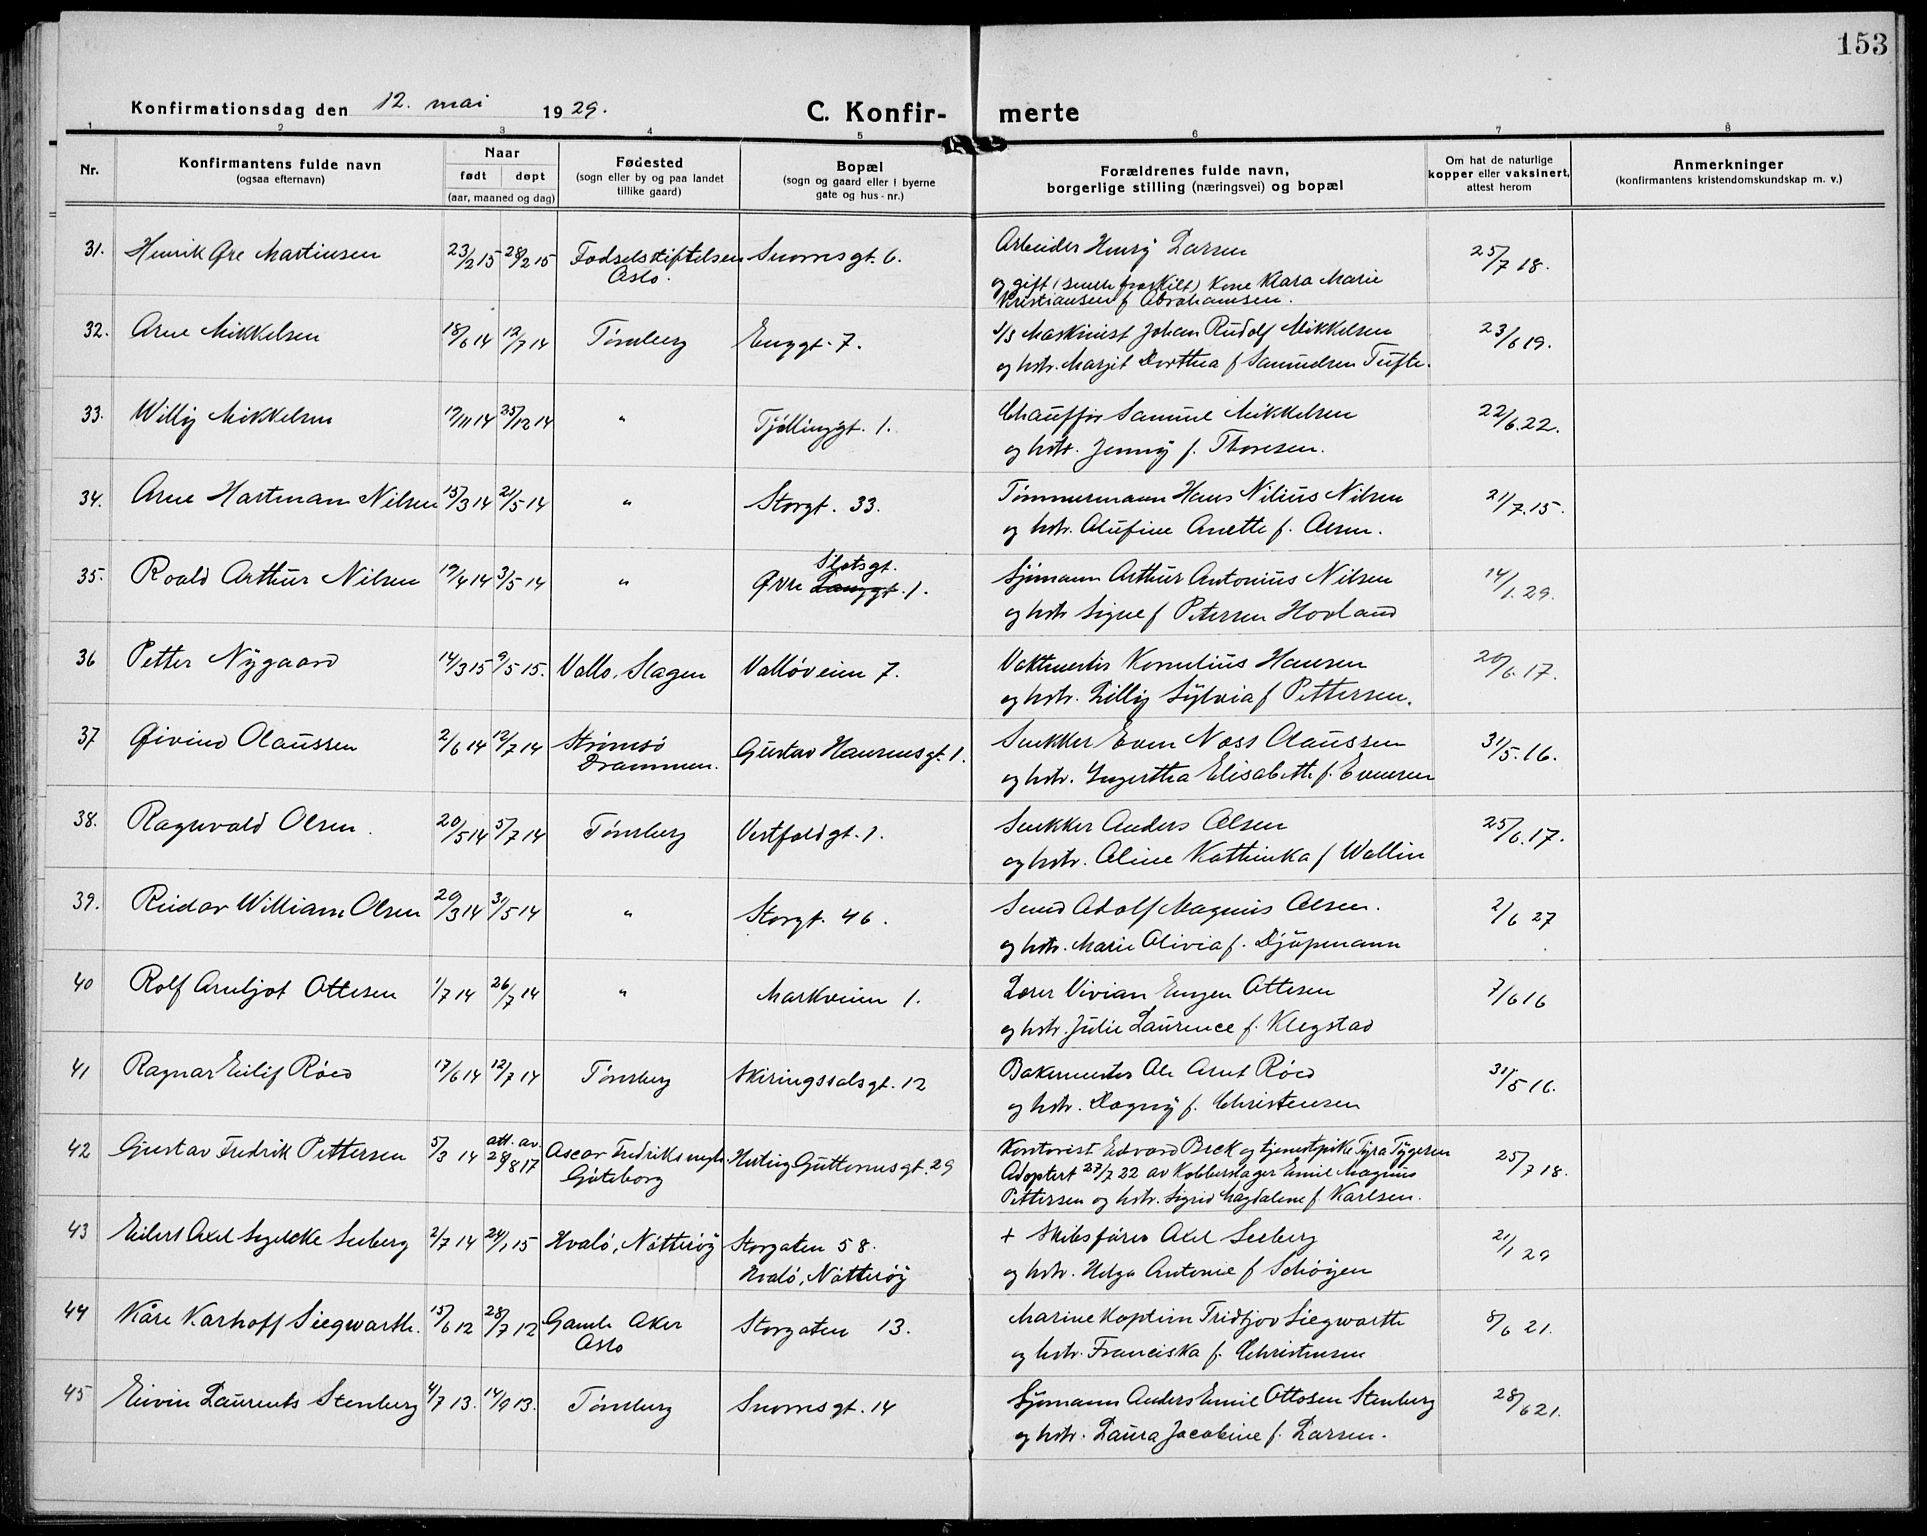 153
Konfirmationsdag den 12. mai 1929.
C. Konfir-merte
1 2 3 4 5 6 7 8
Nr.
Konfirmantens fulde navn
(ogsaa efternavn)
Naar
født døpt
(aar, maaned og dag)
Fødested
(sogn eller by og paa landet
tillike gaard)
Bopæl
(sogn og gaard eller i byerne
gate og hus-nr.)
Forældrenes fulde navn,
borgerlige stilling (næringsvei) og bopæl
Om hat de naturlige
kopper eller vaksinert,
attest herom
Anmerkninger
(konfirmantens kristendomskundskap m. v.)
31. Henrik Øre Martinsen 23/2 15 28/2 15 Fødselsstiftelsen Snorresgt. 6. Arbeider Henry Larsen 25/7 18.
Oslo. og gift (senere fraskilt) Kone Klara Marie
Kristiansen f. Abrahamsen.
32. Arne Mikkelsen 18/6 14 12/7 14 Tønsberg Enggt. 7. s/s Maskinist Johan Rudolf Mikkelsen 23/6 19.
og hstr. Marjit Dorthea f Samuelsen Tufte.
33. Willy Mikkelsen 17/11 14 25/12 14 " Tjøllinggt. 1. Chauffør Samuel Mikkelsen 22/6.22.
og hstr. Jenny f. Thoresen.
34. Arne Hartmann Nilsen 15/3 14 21/5 14 " Storgt. 33. Tømmermann Hans Nilius Nilsen 21/7.15.
og hstr. Olufine Anette f. Olsen.
35. Roald Arthur Nilsen 19/4 14 3/5 14 " Slotsgt.
Øvre Langgt. 1. Sjømann Arthur Antonius Nilsen 14/1.29.
og hstr Signe f Petersen Hovland
36 Petter Nygaard 14/3 15 9/5 15. Vallø, Slagen Valløveien 7. Vaktmester Kornelius Hansen 20/6.17.
og hstr. Lilly Sylvia f Pettersen.
37 Øivind Olaussen 2/6 14 12/7 14 Strømsø Gustav Hansensgt. 1. Snekker Even Næss Olaussen 31/5.16.
Drammen. og hstr. Ingertha Elisabeth f. Evensen
38. Ragnvald Olsen. 20/5 14 5/7 14 Tønsberg Vestfoldgt. 1. Snekker Anders Olsen 25/6.17.
og hstr. Oline Kathinka f Wallin
39. Reidar William Olsen 20/3 14 31/5 14 " Storgt. 46. Smed Adolf Magnus Olsen. 2/6 27
og hstr. Marie Olivia f. Djupemann
40 Rolf Arneljot Ottesen 1/7 14 26/7 14 " Markveien 1. Lærer Vivian Eugen Ottesen 7/6 16
og hstr. Julie Laurence f. Klegstad
41 Ragnar Eilif Røed 17/6 14 12/7 14 Tønsberg Skiringssalsgt. 12 Bakermester Ole Arnt Røed 31/5 16.
og hstr. Dagny f. Christensen
42 Gustav Fredrik Pettersen 5/3 14 att. av 28/8 17 Oscar Fredriks Herlug Guttormsgt. 29 Kontorist Edvard Beck og tjenestepike Tyra 25/7 18.
Göteborg Adoptert 27/7 22 av Kobberslager Emil Magnus
Pettersen og hstr. Sigrid Magdalene f. Karlsen.
43 Eilert Axel Segelcke Seeberg 2/7 14 24/1 15 Hvalø, Nøtterøy Storgaten 58. + Skibsfører Axel Seeberg 21/1 29
Hvalø, Nøtterøy og hstr. Helga Antonie f Schøyen
44 Kåre Karhoff Siegwarth. 15/6 12 28/7 12 Gamle Aker Storgaten 13. Marine Kaptein Fridtjov Siegwarth 8/6 21.
Oslo og hstr. Franciska f. Christensen
45 Eivin Laurents Stenberg 4/7 13. 14/9 13. Tønsberg Snorresgt. 14 Sjømann Anders Emil Ottosen Stenberg 28/6 21.
og hstr. Laura Jacobine f. Larsen.